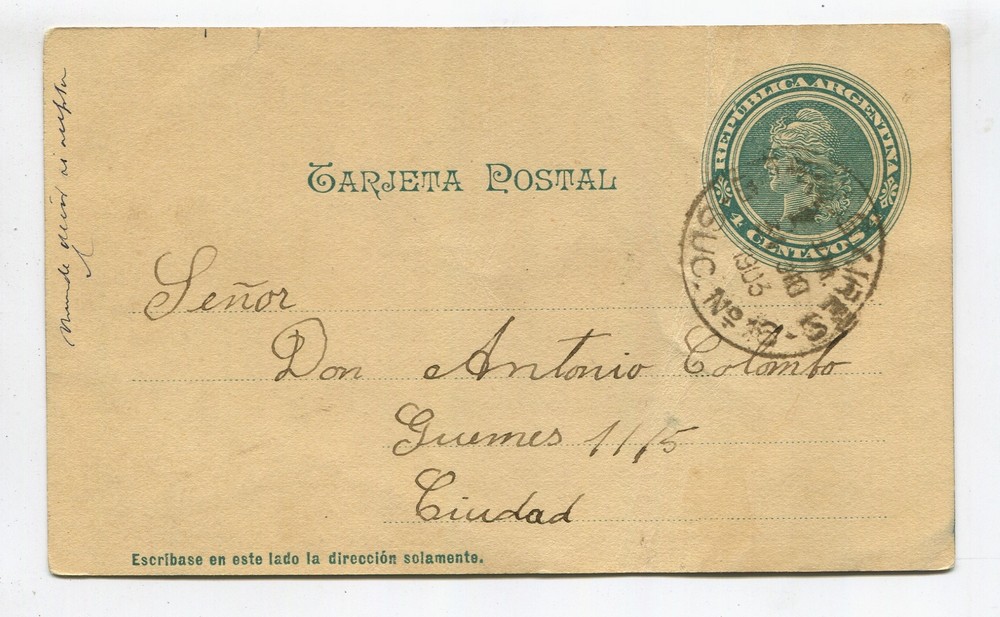 REPUBLICA ARGENTINA
4 CENTAVOS 4
TARJETA POSTAL
AIRES - SUC. Nº
1903
Señor
Don Antonio Colombo
Guemes 1115
Ciudad
Escríbase en este lado la dirección solamente.
Mande decir si